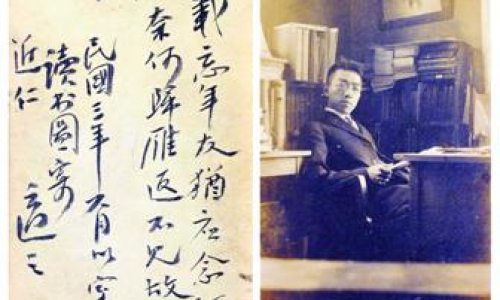 載忘年友猶應念
奈何歸雁返不見故
民國三年六月以室
讀書圖寄
近仁
適之